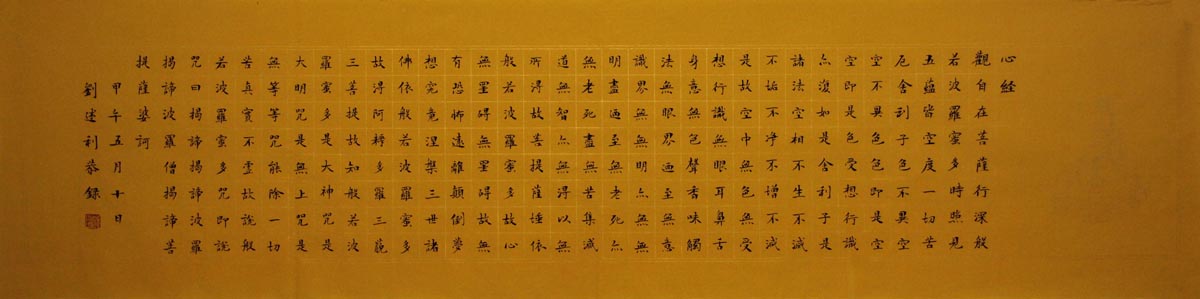 心經
觀自在菩薩行深般
若波羅蜜多時照見
五蘊皆空度一切苦
厄舍利子色不異空
空不異色色即是空
空即是色受想行識
亦復如是舍利子是
諸法空相不生不滅
不垢不淨不增不減
是故空中無色無受
想行識無眼耳鼻舌
身意無色聲香味觸
法無眼界迺至無意
識界無無明亦無無
明盡迺至無老死亦
無老死盡無苦集滅
道無智亦無得以無
所得故菩提薩埵依
般若波羅蜜多故心
無罣礙無罣礙故無
有恐怖遠離顛倒夢
想究竟涅槃三世諸
佛依般若波羅蜜多
故得阿耨多羅三藐
三菩提故知般若波
羅蜜多是大神咒是
大明咒是無上咒是
無等等咒能除一切
苦真實不虛故說般
若波羅蜜多咒即說
咒曰揭諦揭諦波羅
揭諦波羅僧揭諦菩
提薩婆訶
甲午五月十日
劉述利恭錄